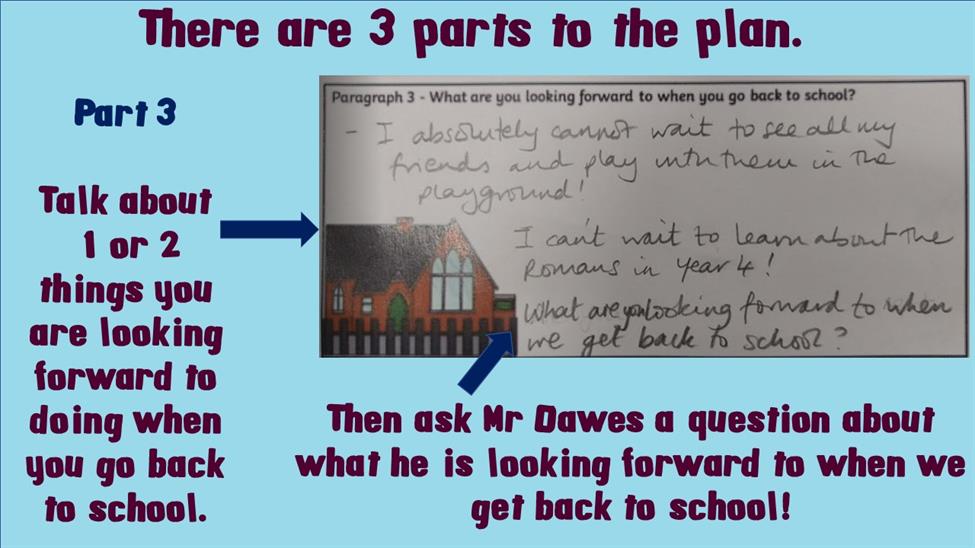 There are 3 parts to the plan.
Part 3
Talk about
1 or 2
things you
are looking
forward to
doing when
you go back
to school.
Paragraph 3 - What are you looking forward to when you go back to school?
- I absolutely cannot wait to see all my
friends and play with them in the
playground!
I can't wait to learn about the
Romans in Year 4!
What are you looking forward to when
we get back to school?
Then ask Mr Dawes a question about
what he is looking forward to when we
get back to school!